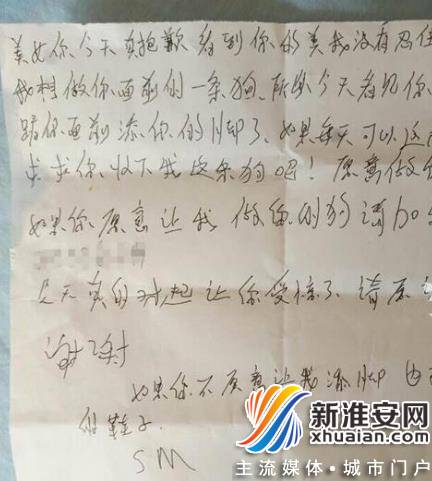 美女你今天真抱歉看到你的美我没有忍住
我想做你面前的一条狗、所以今天看见你、
跪你面前添你的脚了、如果每天可以这
求求你、收下我这条狗吧！愿意做你
如果你愿意让我 做你的狗请加
今天真的对起让你受惊了 请原
谢谢
如果你不愿意让我添脚 也
你鞋子.
SM
新淮安网
xhuaian.com
主流媒体·城市门户